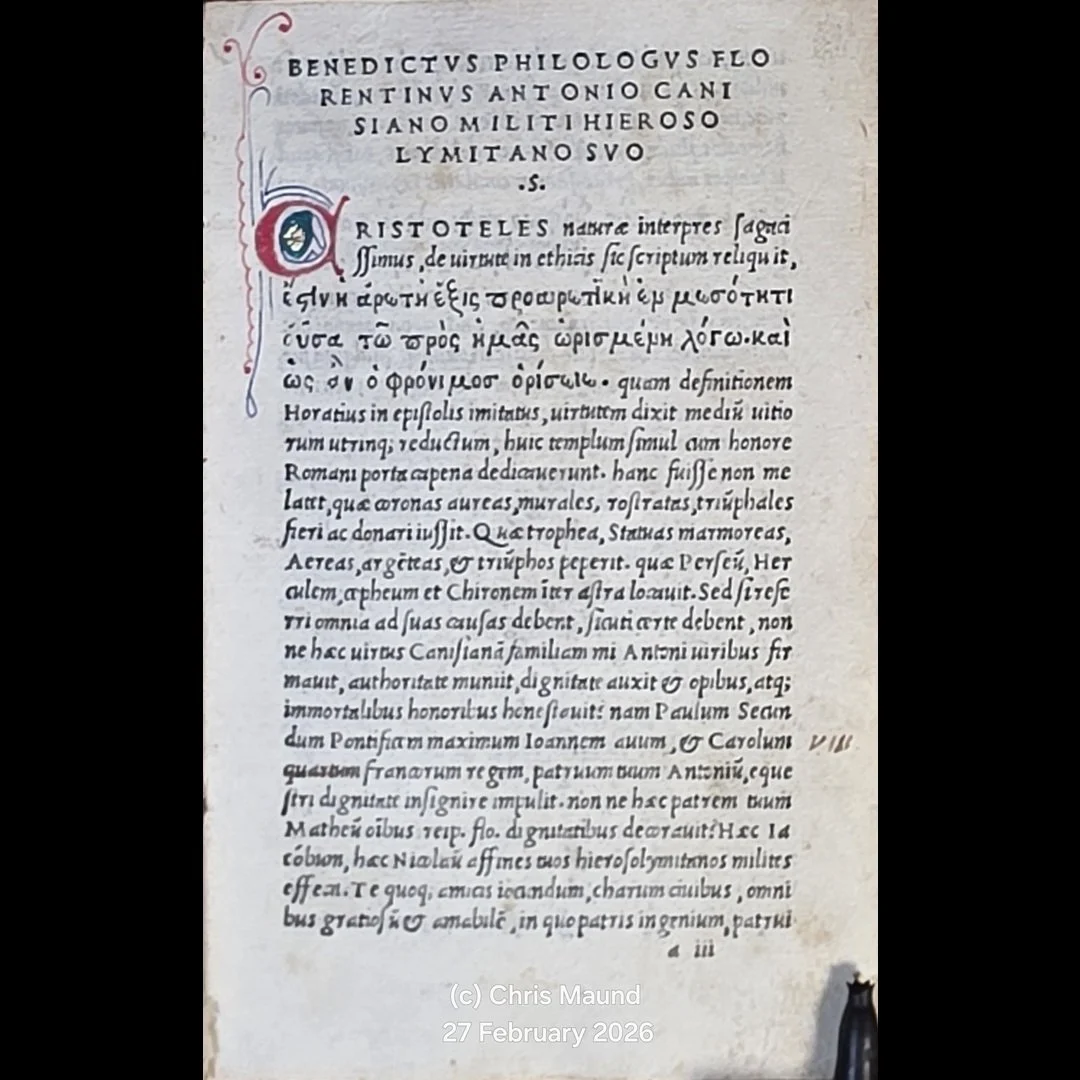 BENEDICTVS PHILOLOGVS FLO
RENTINVS ANTONIO CANI
SIANO MILITI HIEROSO
LYMITANO SVO
.S.
ARISTOTELES naturæ interpres sagaci
ssimus, de uirtute in ethicis sic scriptum reliquit,
ἐςὶν ἡ ἀρετὴ ἕξις προαιρετικὴ ἐν μεσότητι
οὖσα τῶ πρὸς ἡμᾶς ὡρισμένη λόγω. καὶ
ὡς ἂν ὁ φρόνιμος ὁρίσειε. quam definitionem
Horatius in epistolis imitatus, uirtutem dixit mediũ uitio
rum utrinq; reductum, huic templum simul cum honore
Romani porta capena dedicauerunt. hanc fuisse non me
latet, quæ coronas aureas, murales, rostratas, triũphales
fieri ac donari iussit. Quæ trophea, Statuas marmoreas,
Aereas, argẽteas, & triũphos peperit. quæ Perseũ, Her
culem, cepheum et Chironem iter astra locauit. Sed si refe
rri omnia ad suas causas debent, sicuti certe debent, non
ne hæc uirtus Canisianã familiam mi Antoni uiribus fir
mauit, authoritate muniit, dignitate auxit & opibus, atq;
immortalibus honoribus honestauit? nam Paulum Secun
dum Pontificem maximum Ioannem auum, & Carolum VIII
quartum francorum regem, patruum tuum Antoniũ, eque
stri dignitate insignire impulit. non ne hæc patrem tuum
Matheũ oĩbus reip. flo. dignitatibus decorauit? Hæc Ia
cobum, hæc Nicolaũ affines tuos hierosolymitanos milites
effecit. Te quoq; amicis iocundum, charum ciuibus, omni
bus gratiosũ & amabilẽ, in quo patris ingenium, patrui
a iii
(c) Chris Maund
27 February 2026